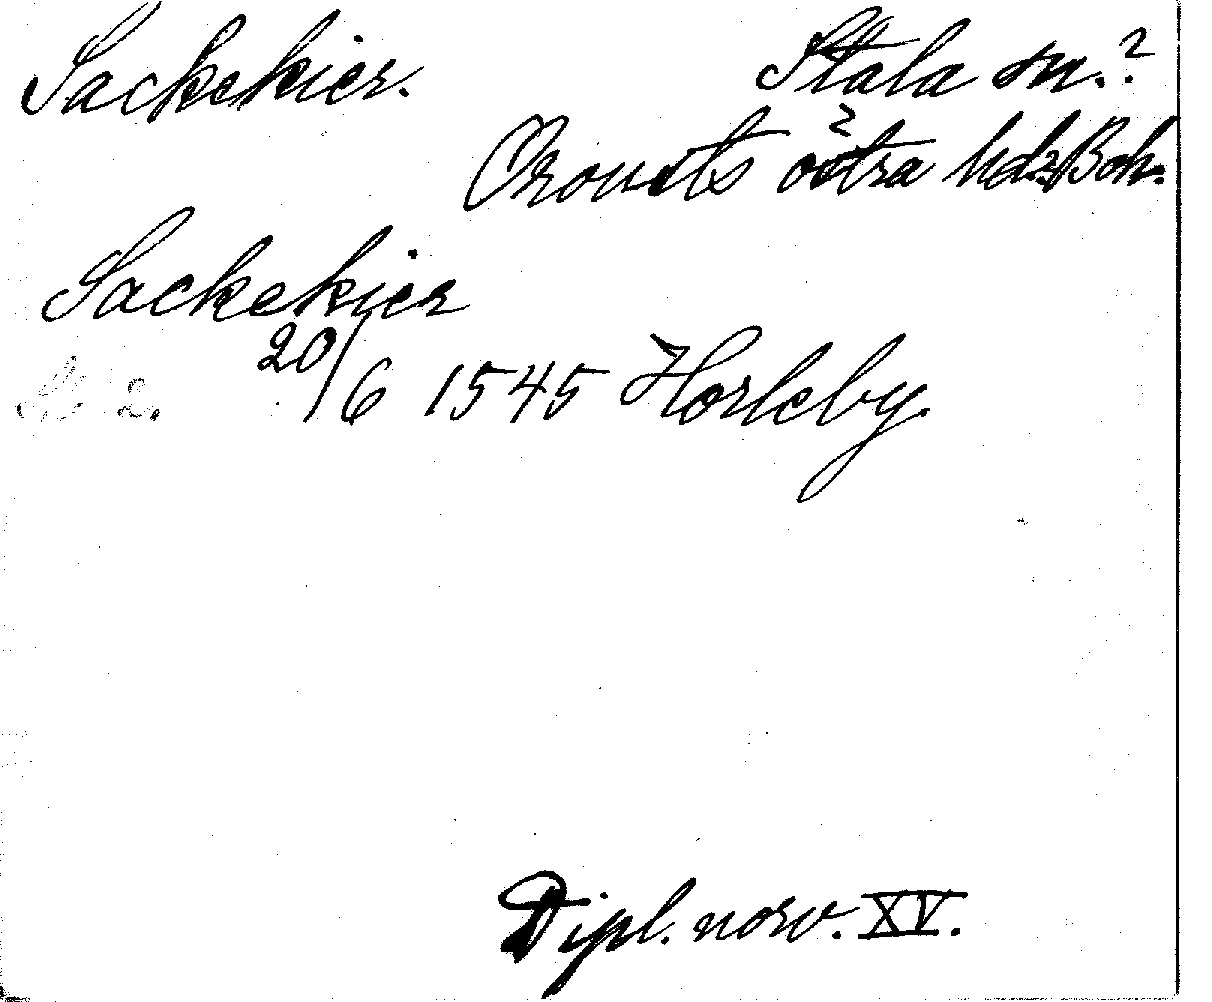 Sackekier. Stala sn.?
Orousts östra hd? Boh.
Sackekier
20/6 1545 Horleby.
Dipl. norv. XV.